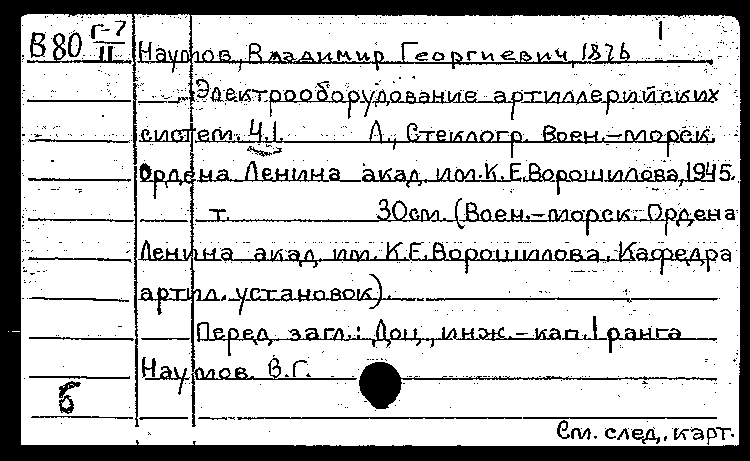 1
В 80 Г-7
II
Наумов, Владимир Георгиевич, 1876
Электрооборудование артиллерийских
систем. Ч.1. Л., Стеклогр. Воен.-морск.
Ордена Ленина акад. им. К.Е.Ворошилова, 1945.
т. 30см. (Воен.-морск. Ордена
Ленина акад. им. К.Е.Ворошилова. Кафедра
артил. установок).
Перед загл.: Доц., инж.-кап. 1 ранга
Наумов В.Г.
б
См. след. карт.